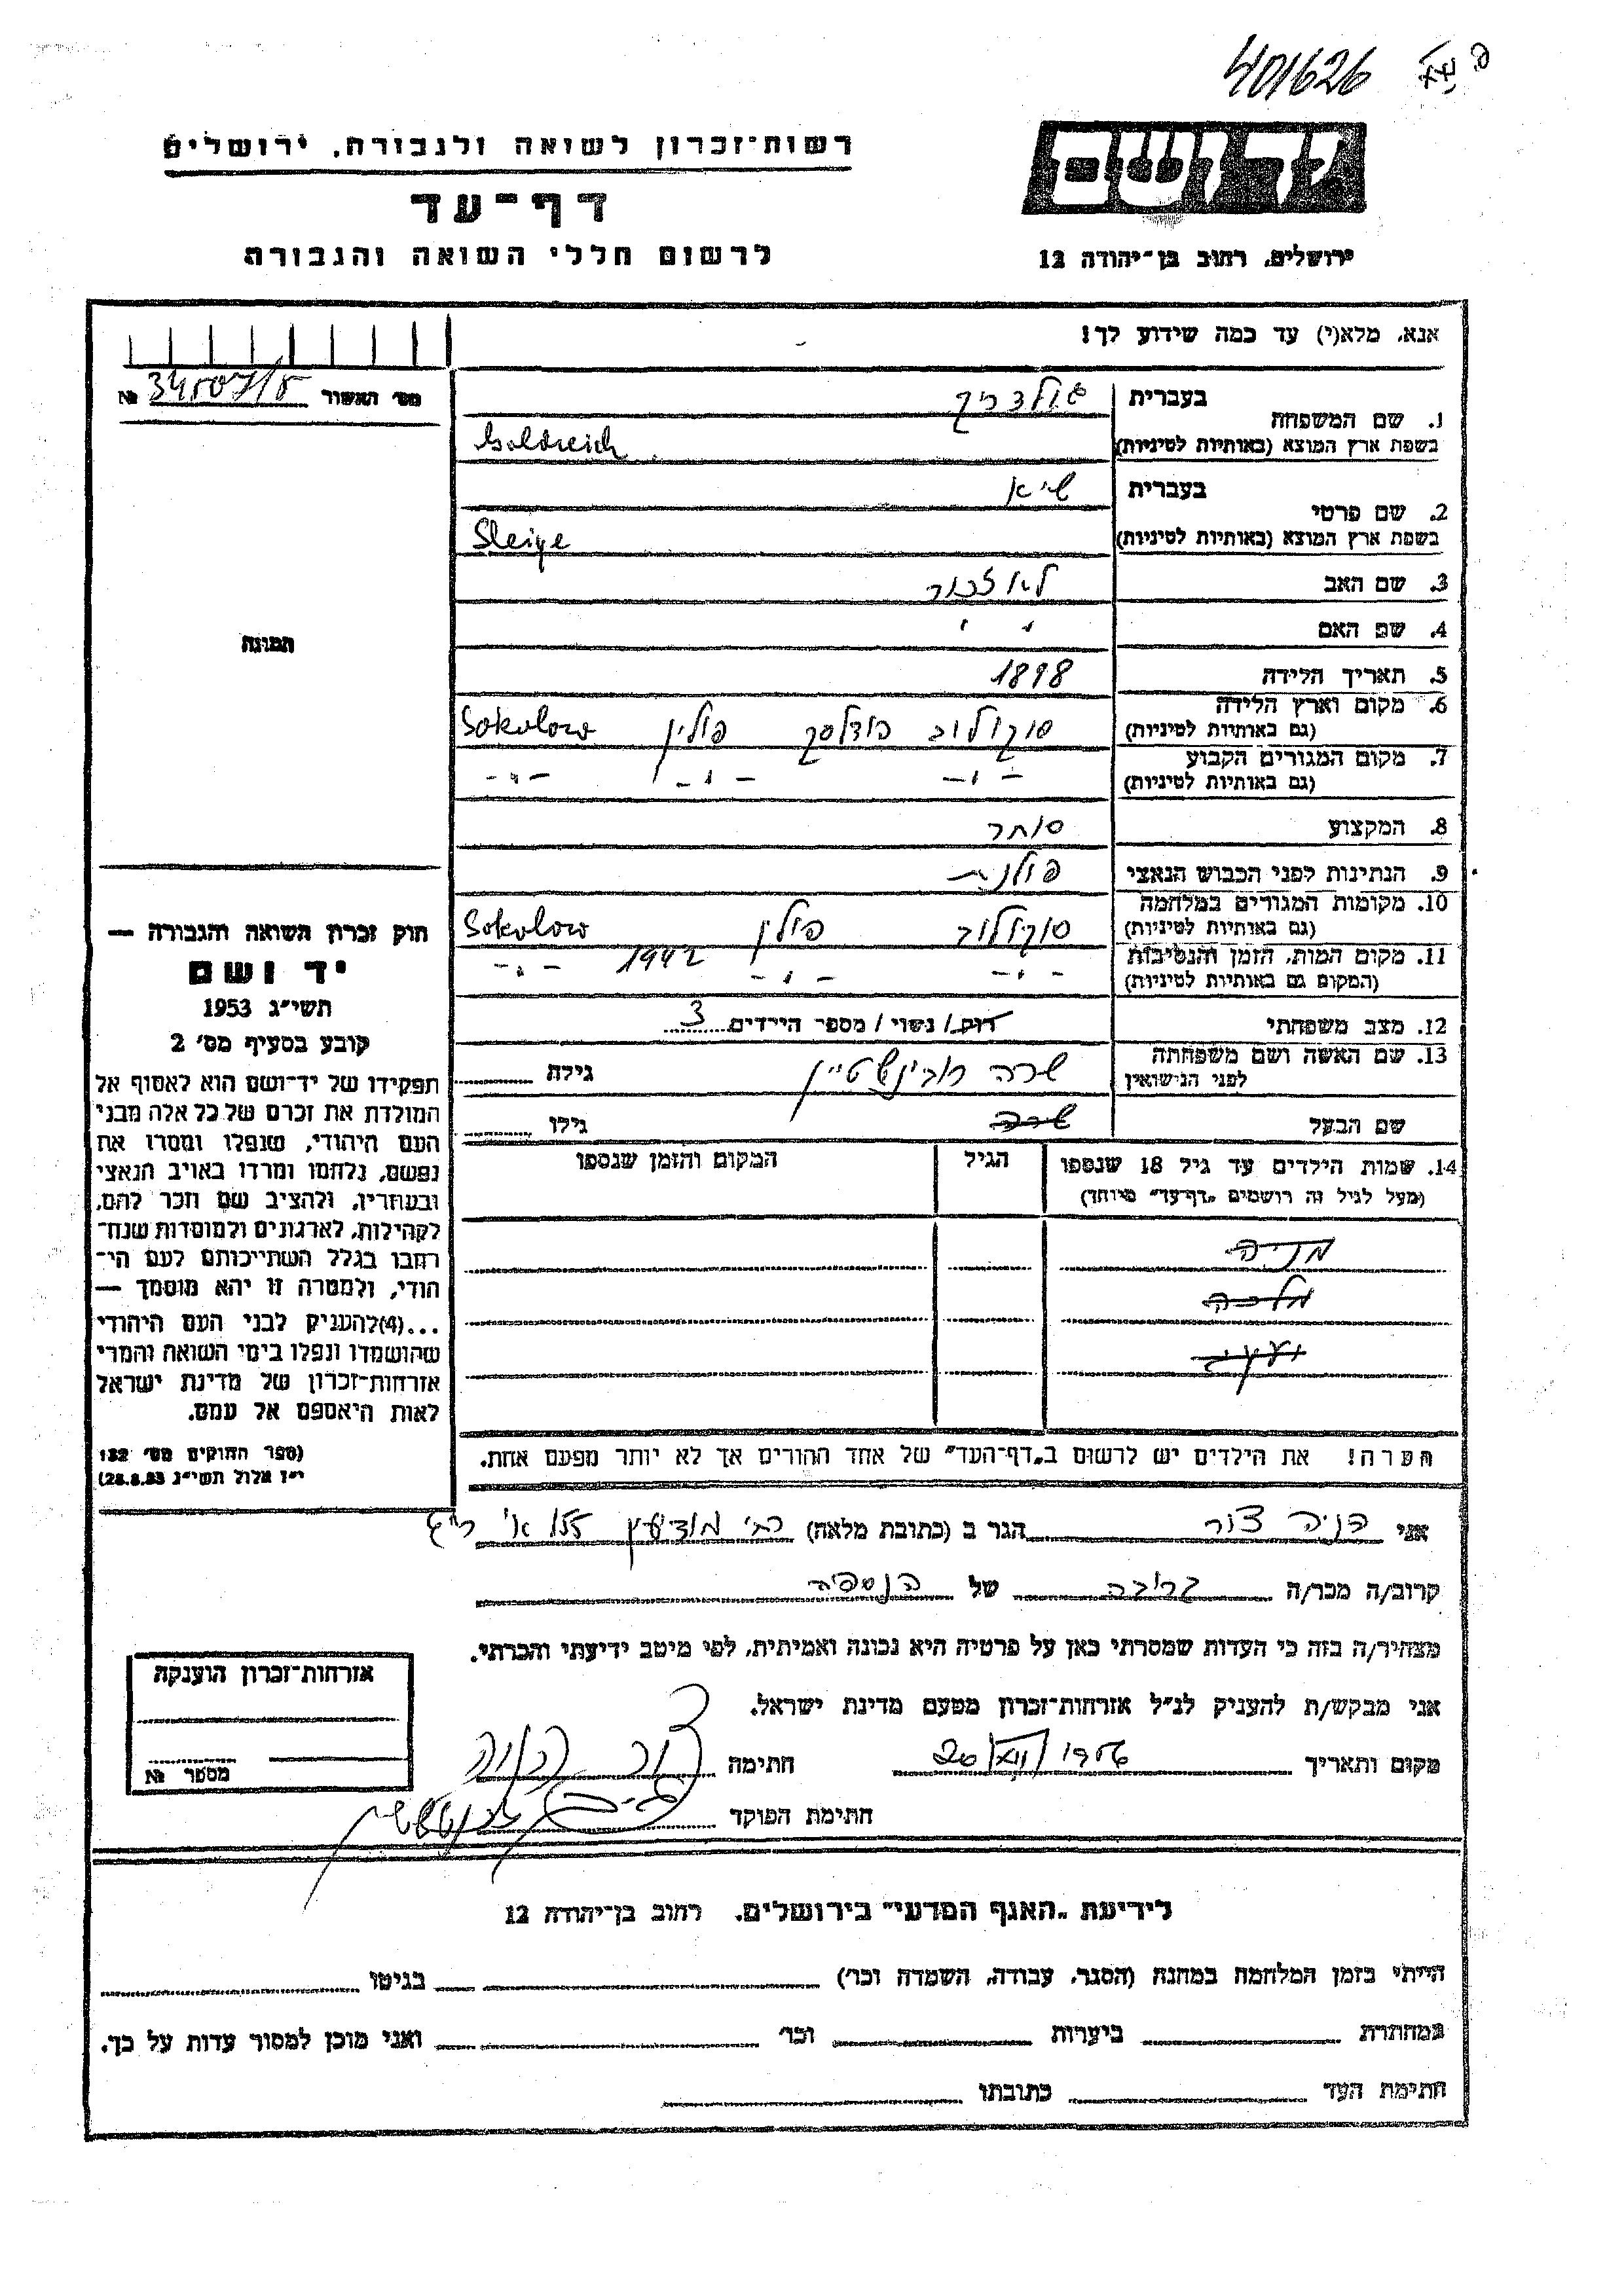 401626
רשות־זכרון לשואה ולגבורה, ירושלים
דף־עד
לרשום חללי השואה והגבורה
יד ושם
ירושלים, רחוב בן־יהודה 12
אנא, מלא(י) עד כמה שידוע לך!
מס׳ האשור № 34507/5
1. שם המשפחה
בעברית גולדריך
בשפת ארץ המוצא (באותיות לטיניות) Goldreich
2. שם פרטי
בעברית שיא
בשפת ארץ המוצא (באותיות לטיניות)
3. שם האב לא זכור
4. שם האם
5. תאריך הלידה 1898
6. מקום וארץ הלידה סוקולוב פודלסק פולין Sokolow
(גם באותיות לטיניות)
7. מקום המגורים הקבוע – ״ – – ״ – – ״ –
(גם באותיות לטיניות)
8. המקצוע סוחר
9. הנתינות לפני הכבוש הנאצי פולנית
10. מקומות המגורים במלחמה סוקולוב פולין Sokolow
(גם באותיות לטיניות)
11. מקום המות, הזמן והנסיבות – ״ – – ״ – 1942 – ״ –
(המקום גם באותיות לטיניות)
12. מצב משפחתי רוק/ נשוי / מספר הילדים 3
13. שם האשה ושם משפחתה לפני הנישואין שרה רובינשטיין גילה
שם הבעל שרה גילו
14. שמות הילדים עד גיל 18 שנספו הגיל המקום והזמן שנספו
(מעל לגיל זה רושמים „דף־עד״ מיוחד)
מניה
מלכה
הערה! את הילדים יש לרשום ב„דף־העד״ של אחד ההורים אך לא יותר מפעם אחת.
תמונה
חוק זכרון השואה והגבורה —
יד ושם
תשי״ג 1953
קובע בסעיף מס׳ 2
תפקידו של יד־ושם הוא לאסוף אל
המולדת את זכרם של כל אלה מבני
העם היהודי, שנפלו ומסרו את
נפשם, נלחמו ומרדו באויב הנאצי
ובעוזריו, ולהציב שם וזכר להם,
לקהילות, לארגונים ולמוסדות שנח־
רבו בגלל השתייכותם לעם הי־
הודי, ולמטרה זו יהא מוסמך —
...(4)להעניק לבני העם היהודי
שהושמדו ונפלו בימי השואה והמרי
אזרחות־זכרון של מדינת ישראל
לאות היאספם אל עמם.
(ספר החוקים מס׳ 132
י״ז אלול תשי״ג 28.8.53)
אני צור הגר ב (כתובת מלאה)
קרוב/ה מכר/ה קרובה של הנספה
מצהיר/ה בזה כי העדות שמסרתי כאן על פרטיה היא נכונה ואמיתית, לפי מיטב ידיעתי והכרתי.
אני מבקש/ת להעניק לנ״ל אזרחות־זכרון מטעם מדינת ישראל.
מקום ותאריך 1956 חתימה
חתימת הפוקד
אזרחות־זכרון הוענקה
מספר №
לידיעת „האגף המדעי״ בירושלים, רחוב בן־יהודה 12
הייתי בזמן המלחמה במחנה (הסגר, עבודה, השמדה וכו׳) בגיטו
במחתרת ביערות וכו׳ ואני מוכן למסור עדות על כך.
חתימת העד כתובתו